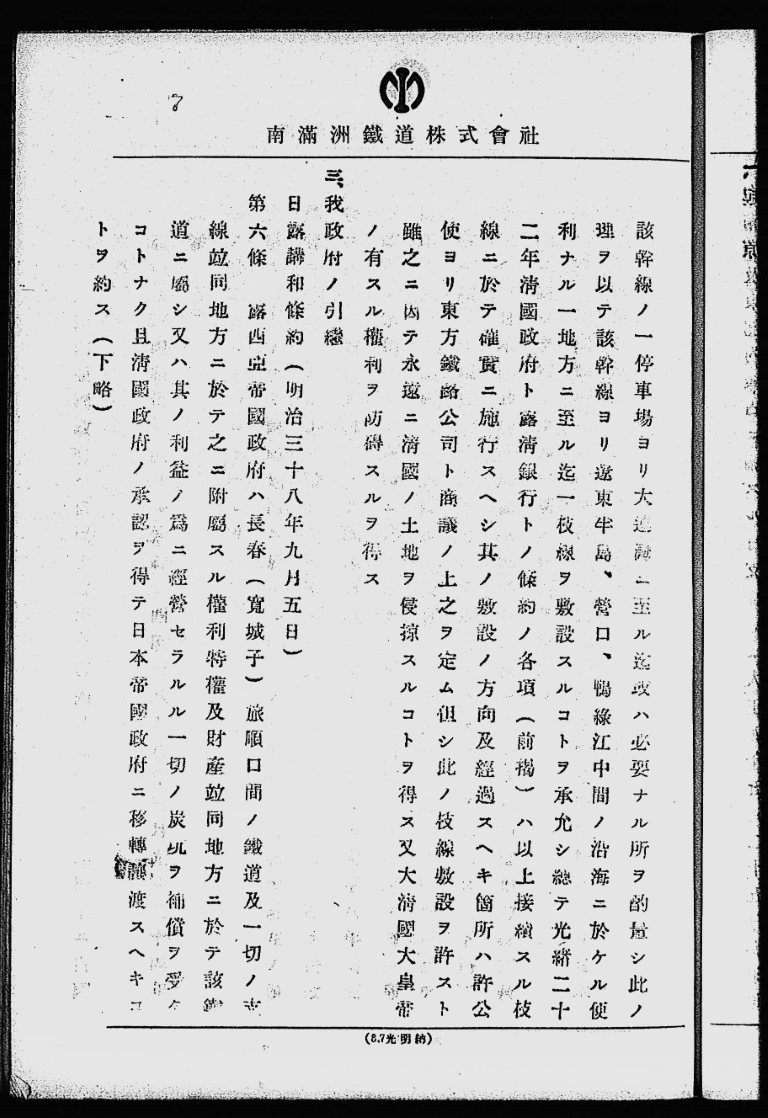 7
南滿洲鐵道株式會社
該幹線ノ一停車場ヨリ大連灣ニ至ル迄或ハ必要ナル所ヲ酌量シ此ノ
理ヲ以テ該幹線ヨリ遼東半島、營口、鴨綠江中間ノ沿海ニ於ケル便
利ナル一地方ニ至ル迄一枝線ヲ敷設スルコトヲ承允シ總テ光緖二十
二年淸國政府ト露淸銀行トノ條約ノ各項(前揭)ハ以上接續スル枝
線ニ於テ確實ニ施行スヘシ其ノ敷設ノ方向及經過スヘキ箇所ハ許公
使ヨリ東方鐵路公司ト商議ノ上之ヲ定ム但シ此ノ枝線敷設ヲ許スト
雖之ニ因テ永遠ニ淸國ノ土地ヲ侵掠スルコトヲ得ス又大淸國大皇帝
ノ有スル權利ヲ妨碍スルヲ得ス
三、我政府ノ引繼
日露講和條約(明治三十八年九月五日)
第六條 露西亞帝國政府ハ長春(寬城子)旅順口間ノ鐵道及一切ノ支
線竝同地方ニ於テ之ニ附屬スル權利特權及財產竝同地方ニ於テ該鐵
道ニ屬シ又ハ其ノ利益ノ爲ニ經營セラルル一切ノ炭坑ヲ補償ヲ受ク
コトナク且淸國政府ノ承認ヲ得テ日本帝國政府ニ移轉讓渡スヘキコ
トヲ約ス(下略)
(8.7光明納)